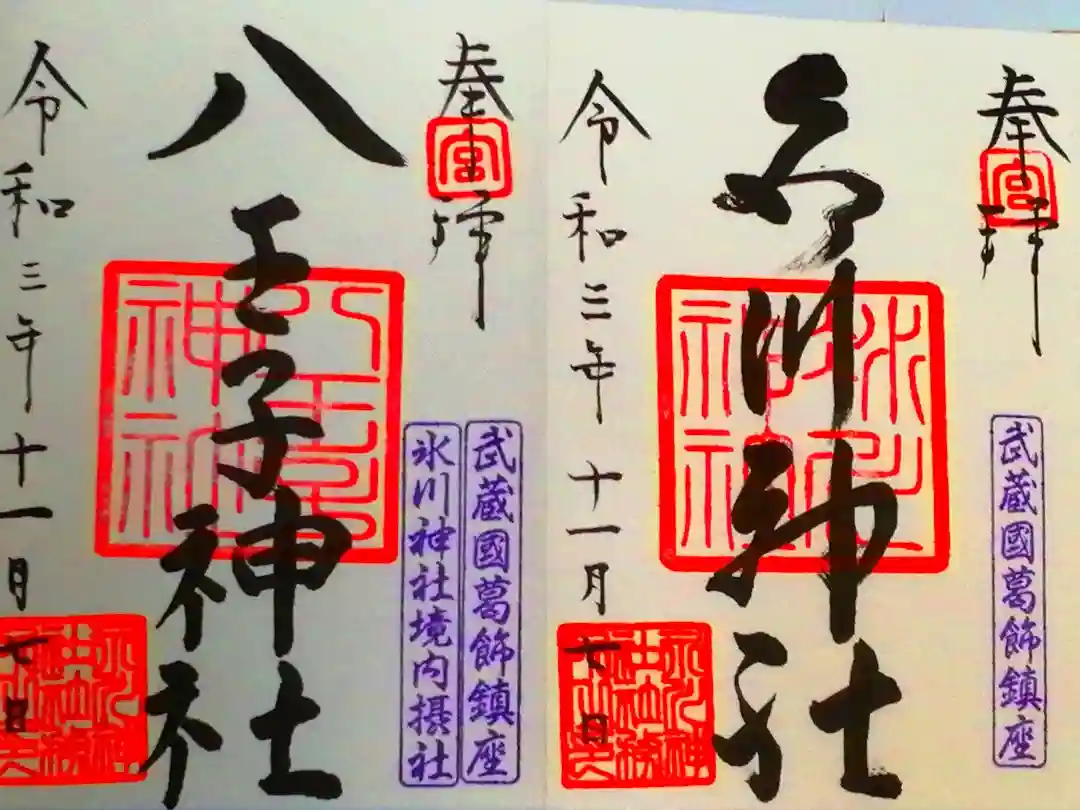 奉拝
宮
氷川神社
氷川神社
武蔵國葛飾鎮座
令和三年十一月七日
奉拝
宮
八王子神社
八王子神社
武蔵國葛飾鎮座
氷川神社境内摂社
令和三年十一月七日